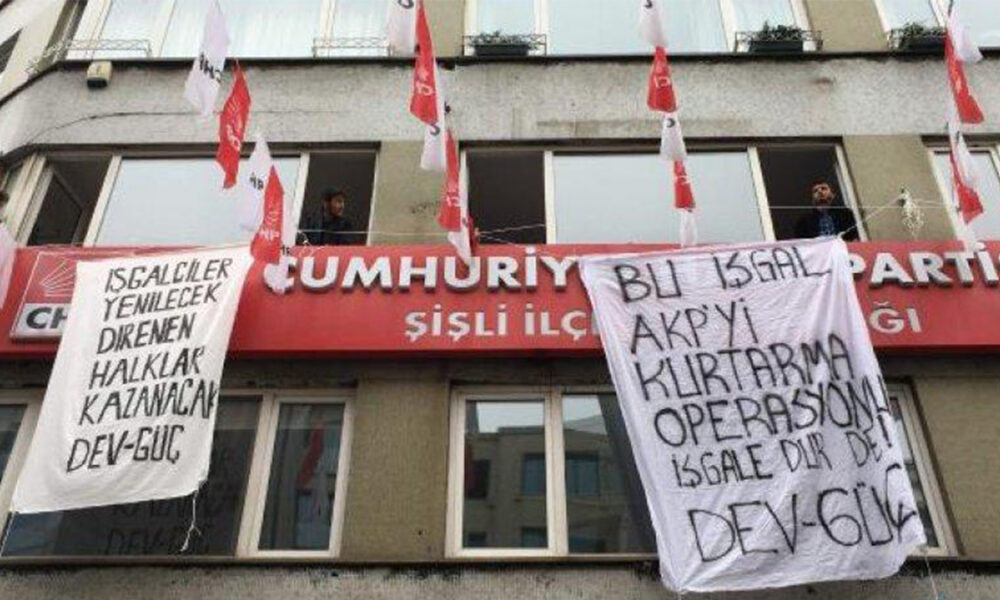 CHP
CUMHURİY PARTİSİ
ŞİŞLİ İLÇ ĞI
IŞGALCİLER
YENİLECEK
DİRENEN
HALKLAR
KAZANACAK
DEV-GÜÇ
BU IŞGAL
AKP'Yİ
KURTARMA
OPERASYONU!
IŞGALE DUR DE!
DEV-GÜÇ